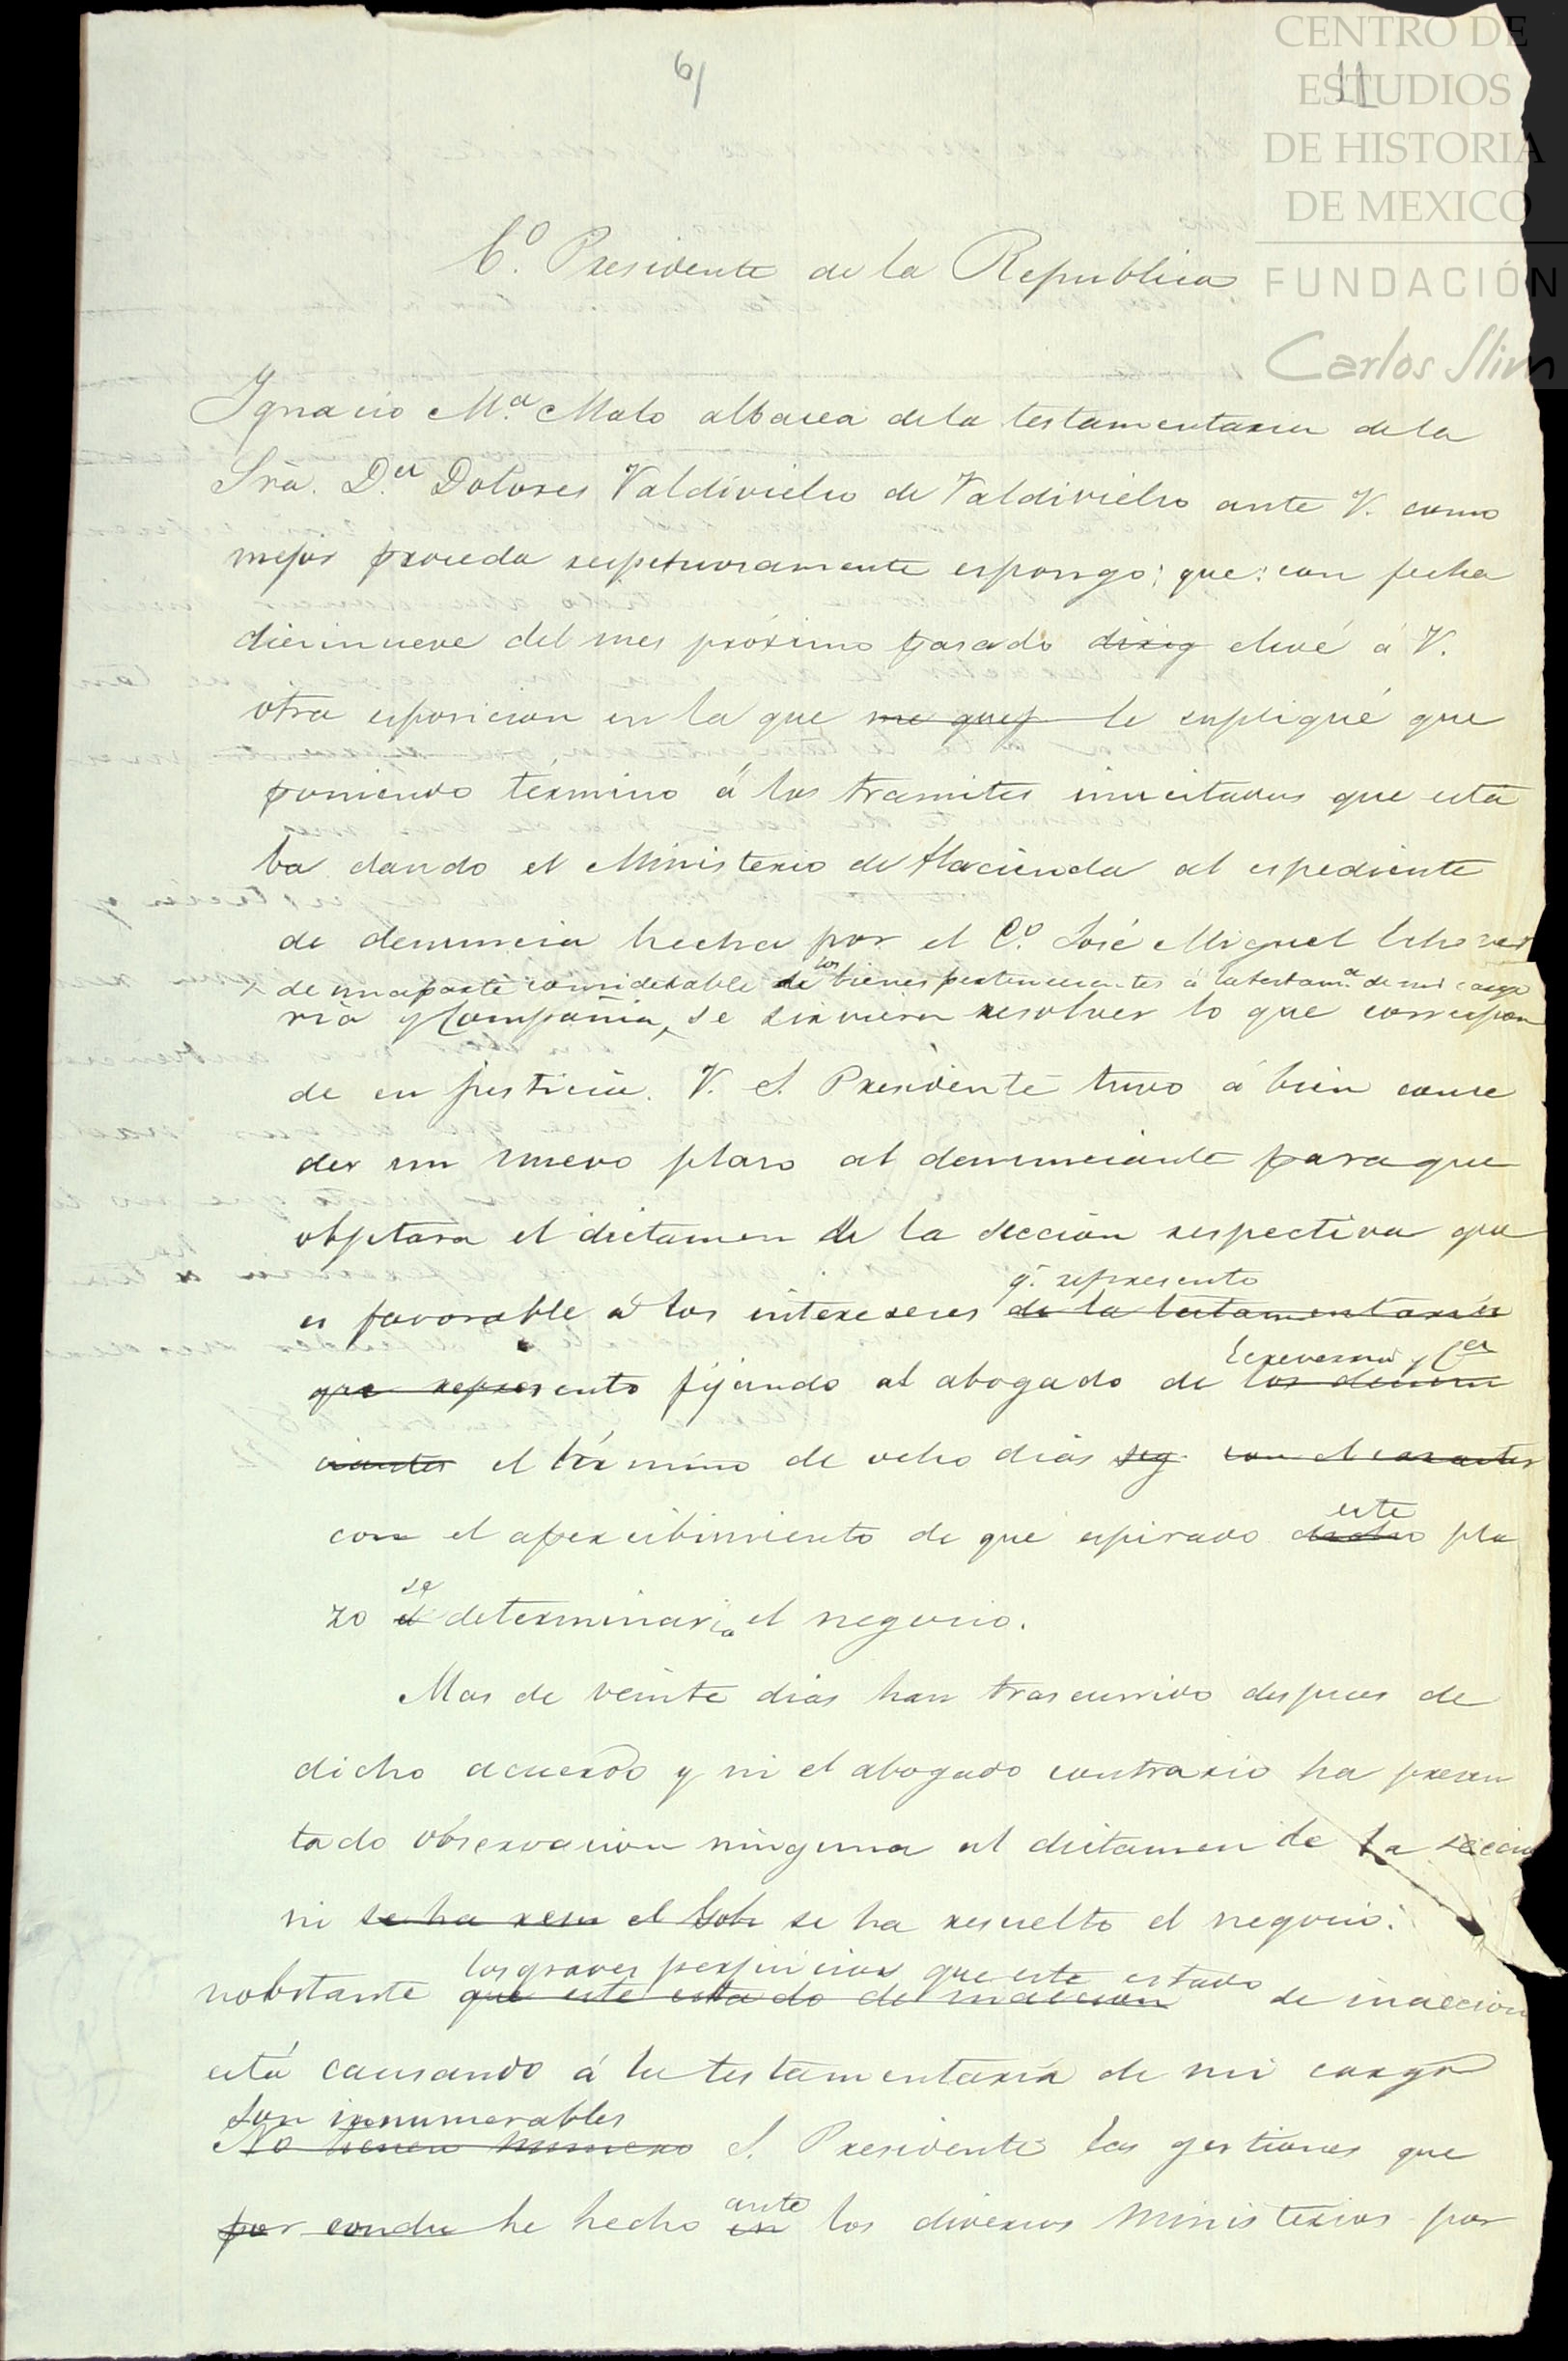 6/
11
CENTRO DE
ESTUDIOS
DE HISTORIA
DE MEXICO
FUNDACIÓN
Carlos Slim
C.º Presidente de la Republica
Ignacio M.ª Malo albacea de la testamentaria de la
Sra. D.ª Dolores Valdivielso de Valdivielso ante V. como
mejor proceda respetuosamente espongo: que: con fecha
diezinueve del mes próximo pasado dirig elevé á V.
otra esposicion en la que me quej le supliqué que
poniendo término á los tramites inucitados que esta
ba dando el Ministerio de Hacienda al espediente
de denuncia hecha por el C.º José Miguel Echever
x de una parte considerable de los bienes pertenecientes á la testam.ª de mi cargo
ria y Compañia, se sirviera resolver lo que correspon
de en justicia. V. S. Presidente tuvo á bien conce
der un nuevo plazo al denunciante para que
objetara el dictamen de la seccion respectiva que
q.e represento
es favorable á los intereseres de la testamentaria
Echeverria y C.ia
que represento fijando al abogado de los denun
ciantes el término de ocho dias seg con el caracter
este
con el apercibimiento de que espirado dicho pla
se
zo el determinaria el negocio.
Mas de veinte dias han trascurrido despues de
dicho acuerdo y ni el abogado contrario ha presen
tado observacion ninguna al dictamen de la seccion
ni se ha resu el Gob se ha resuelto el negocio:
los graves perjuicios que este estado
nobstante que este estado de inaccion de inaccion
está causando á la testamentaria de mi cargo
Son innumerables
No tienen numero S. Presidente las gestiones que
ante
por condu he hecho en los diversos Ministerios por